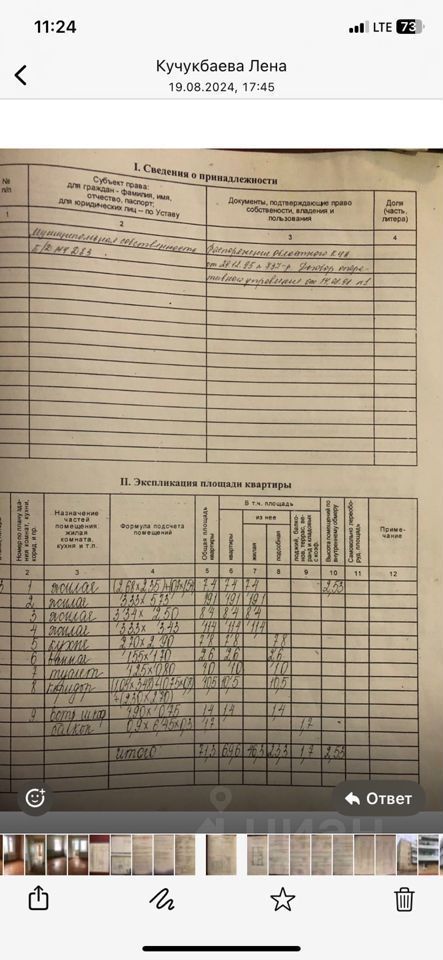 11:24
LTE 73
Кучукбаева Лена
19.08.2024, 17:45
I. Сведения о принадлежности
№ п/п
Субъект права:
для граждан - фамилия, имя,
отчество, паспорт;
для юридических лиц – по Уставу
Документы, подтверждающие право
собственности, владения и
пользования
Доля
(часть,
литера)
1 2 3 4
Муниципальная собственность
от 29.12.95
II. Экспликация площади квартиры
Номер по плану
комнат, кухни,
корид. и пр.
Назначение
частей
помещения:
жилая
комната,
кухня и т.п.
Формула подсчета
помещений
Общая площадь
квартиры
В т.ч. площадь
квартиры
из нее
жилая
подсобная
лоджий, балко-
нов, террас, ве-
ранд и кладовых
с коэф.
Высота помещений по
внутреннему обмеру
Самовольно переобо-
руд. площадь
Приме-
чание
2 3 4 5 6 7 8 9 10 11 12
1 жилая 7,4 7,4 7,4 2,53
2 жилая 3,33 x 5,73 19,1 19,1 19,1
3 жилая 3,34 x 2,50 8,4 8,4 8,4
4 жилая 3,33 x 3,43 11,4 11,4 11,4
5 кухня 2,70 x 2,90 7,8 7,8 7,8
6 ванная 1,55 x 1,70 2,6 2,6 2,6
7 туалет 1,25 x 0,80 1,0 1,0 1,0
8 коридор 10,5 10,5 10,5
9 встр. шкаф 1,90 x 0,75 1,4 1,4 1,4
балкон 0,9 x 6,45 x 0,3 1,7 1,7
итого 71,3 69,6 46,3 23,3 1,7 2,53
Ответ
циан